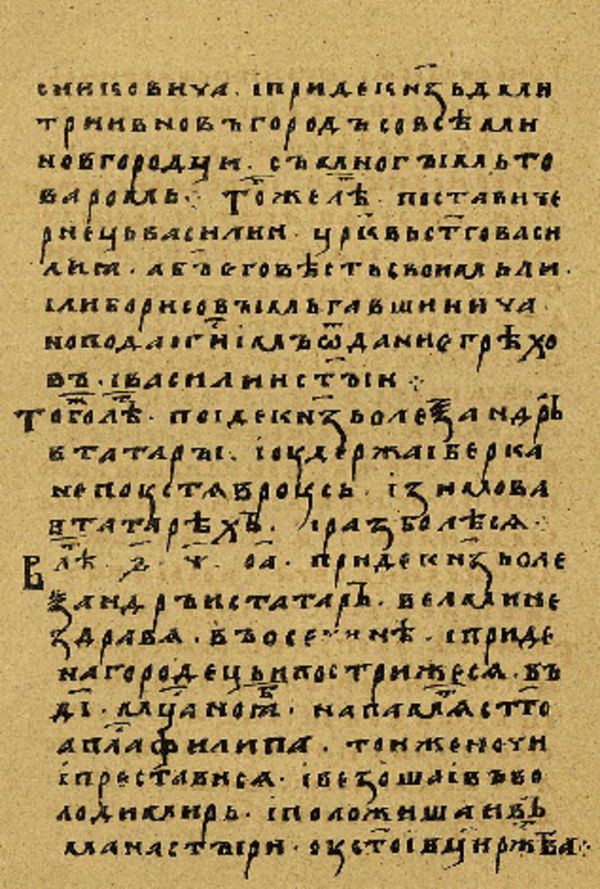 сииковича · і приде кнѧзь дми
трии в новъгородъ со всѣми
новгородци · съ многымь то
варомь · Того ж лѣ҃ · постави че
рнець василии · ц҃рквь ст҃го васи
лиѩ · а б҃ъ его вѣсть своимь ли ·
іли борисовымь гавшинича
но подаі г҃и імъ ѿданье грѣхо
въ · і василии ст҃ыи
Того лѣ҃ · поіде кн҃зь олеѯандръ
в татары · і оудержа і берка
не поустѧ в роусь · і зимова
в татарѣхъ · і разболѣсѧ ·
В лѣ҃ · ҂ѕ҃ · ѱ҃ · о҃а · приде кн҃зь оле
ѯандръ ис татаръ · велми не
здравѧ · въ осенинѣ · і приде
на городець и пострижесѧ · въ
д҃і · мц҃а ноѩ҃ · на памѧ ст҃го
ап҃ла филипа · том же ночи
і престависѧ · і везоша і въ во
лодимирь · і положиша и въ
манастыри · оу ст҃оі бц҃и рж҃ва